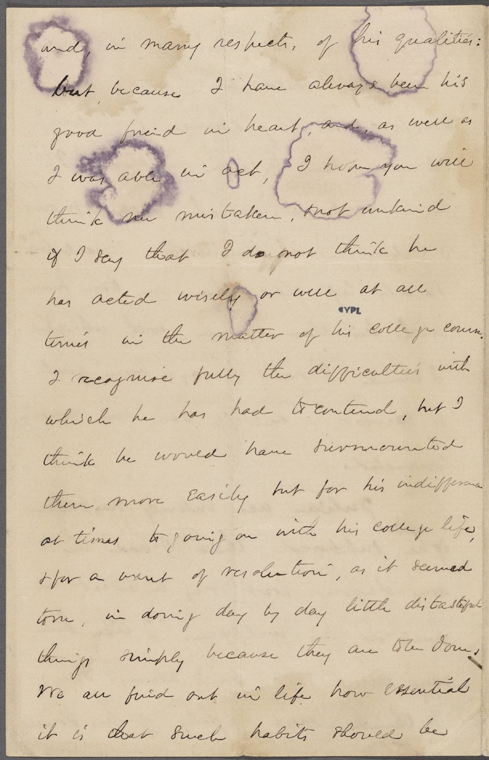 and, in many respects, of his qualities:
but, because I have always been his
good friend in heart, and, as well as
I was able in act, I hope you will
think me mistaken, not unkind
if I say that I do not think he
has acted wisely or well at all
times in the matter of his college course.
NYPL
I recognise fully the difficulties with
which he has had to contend, but I
think he would have surmounted
them more easily but for his indifference
at times to going on with his college life,
& for a want of resolution, as it seemed
to me, in doing day by day little distasteful
things simply because they are to be done.
We all find out in life how essential
it is that such habits should be